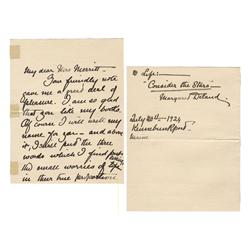 My dear Miss Merritt -
Your friendly note
gave me a great deal of
pleasure. I am so glad
that you like my books.
Of course I will write my
name for you - and above
it, I shall put the three
words which I find
the small worries of Life
in their true proportion!
Life:
"Consider the Stars"
Margaret Deland
July 20th - 1924
Kennebunkport
Maine